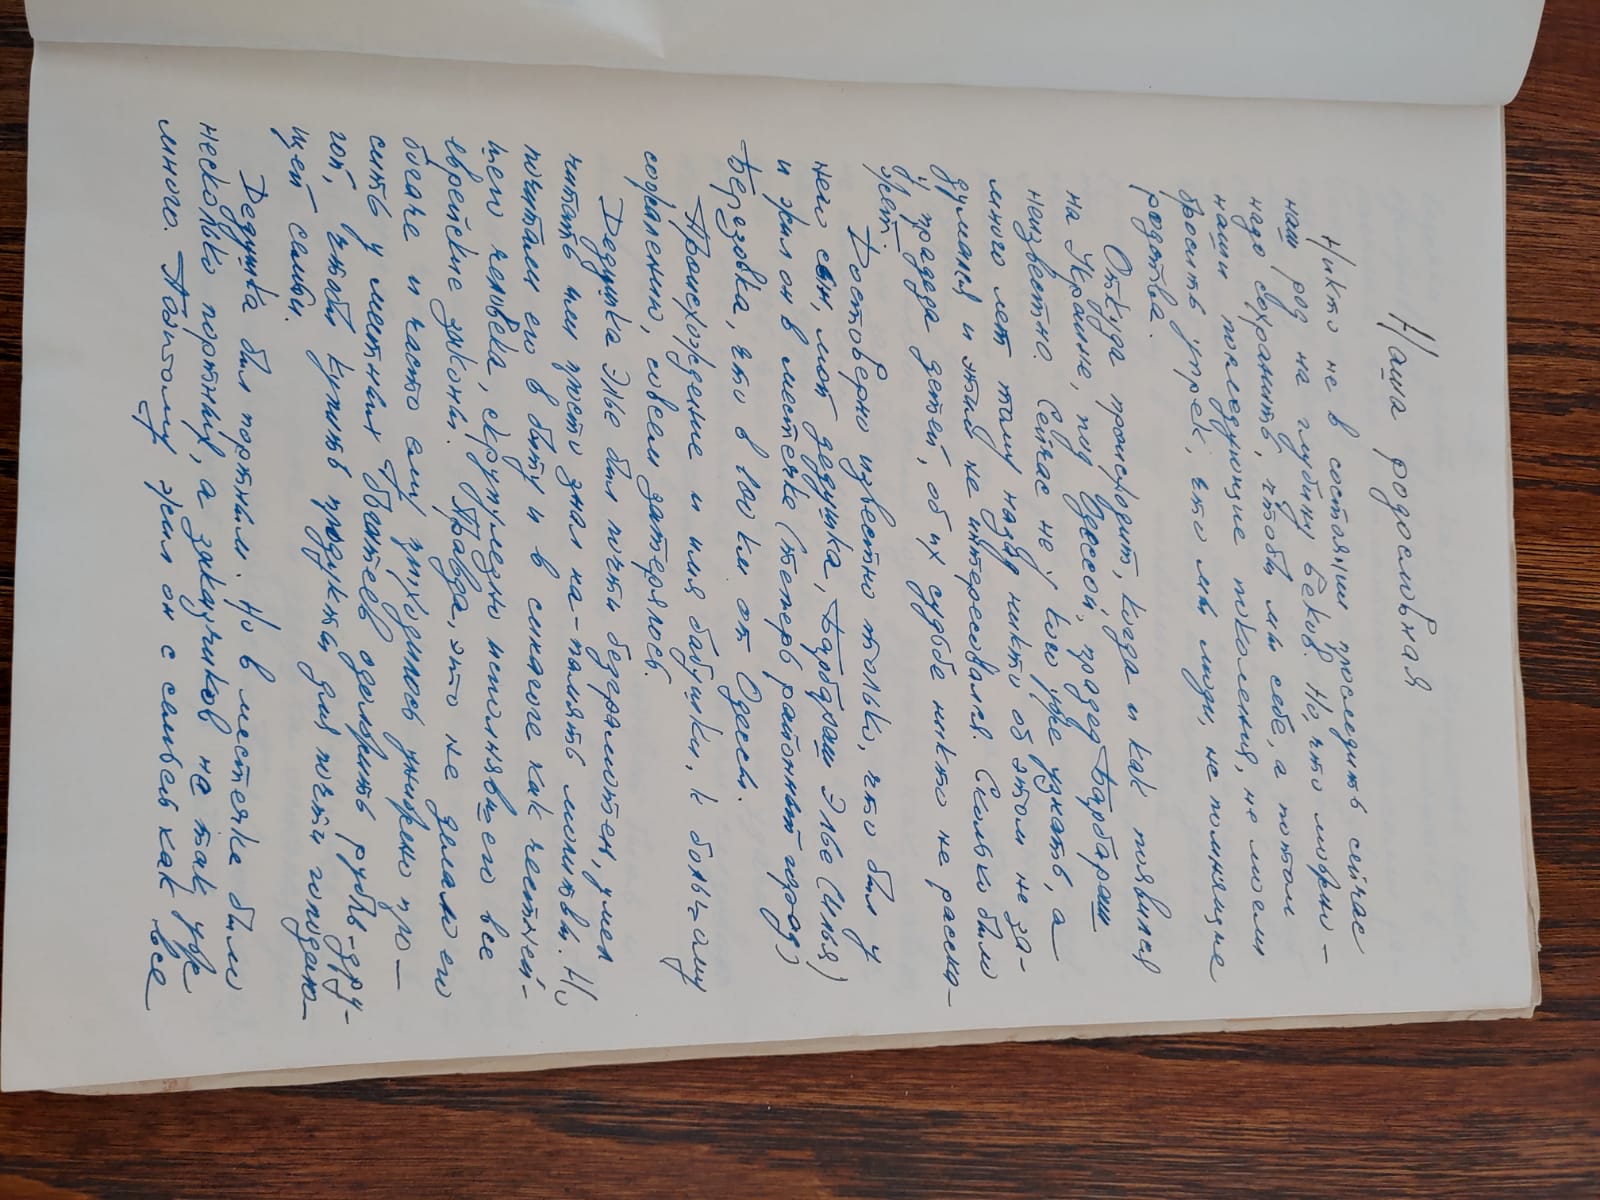 Наша родословная
Никто не в состоянии проследить сейчас
наш род на глубину веков. Но, что можно –
надо сохранить, чтобы мы себе, а потом
наши последующие поколения, не могли
бросить упрек, что мы люди, не помнящие
родства.
Откуда происходит, когда и как появился
на Украине, под Одессой, прадед Барбараш
неизвестно. Сейчас не у кого уже узнать, а
много лет тому назад никто об этом не за-
думался и этим не интересовался. Сколько было
у прадеда детей, об их судьбе никто не расска-
жет.
Достоверно известно только, что был у
него сын, мой дедушка, Барбараш Элье (Илья)
и жил он в местечке (теперь районный город)
Березовка, что в 100 км от Одессы.
Происхождение и имя бабушки, к большому
сожалению, совсем затерялось.
Дедушка Элье был почти безграмотен, умел
читать или просто знал на-память молитвы. Но
почитали его в быту и в синагоге как честней-
шего человека, скрупулезно исполнявшего все
еврейские законы. Правда, это не делало его
богаче и часто ему приходилось униженно про-
сить у местных богатеев одолжить рубль-дру-
гой, чтобы купить продукты для почти голодаю-
щей семьи.
Дедушка был портным. Но в местечке было
несколько портных, а заказчиков не так уж
много. Поэтому жил он с семьей как все